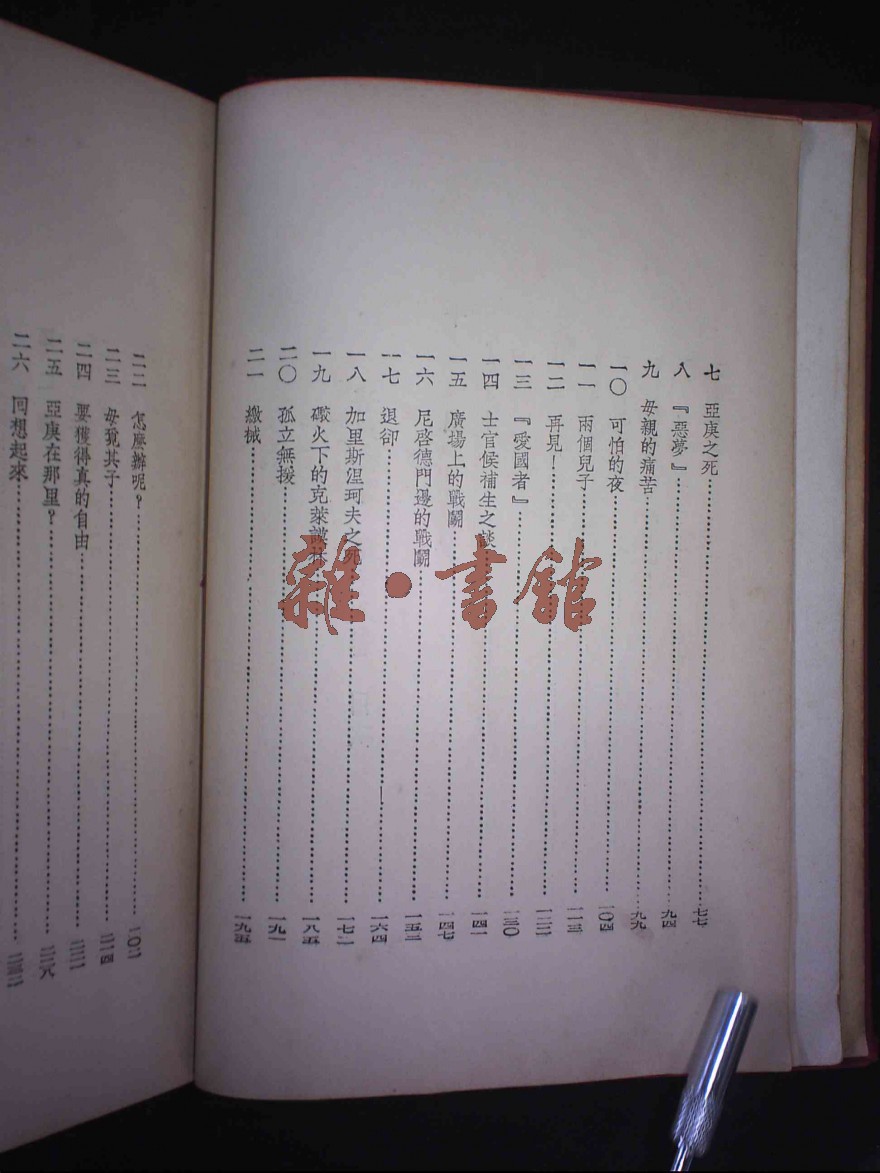 七 亞庚之死 七七
八 『惡夢』 九四
九 母親的痛苦 九九
一〇 可怕的夜 一〇四
一一 兩個兒子 一一三
一二 再見！ 一二二
一三 『愛國者』 一三〇
一四 士官候補生之談 一四一
一五 廣場上的戰鬭 一四七
一六 尼啓德門邊的戰鬭 一五三
一七 退卻 一六四
一八 加里斯涅珂夫之死 一七二
一九 礮火下的克萊謨林 一八五
二〇 孤立無援 一九一
二一 繳械 一九五
二二 怎麼辦呢？ 二〇二
二三 母覓其子 二一四
二四 要獲得真的自由 二二二
二五 亞庚在那里？ 二二八
二六 回想起來 二三二
雜·書館